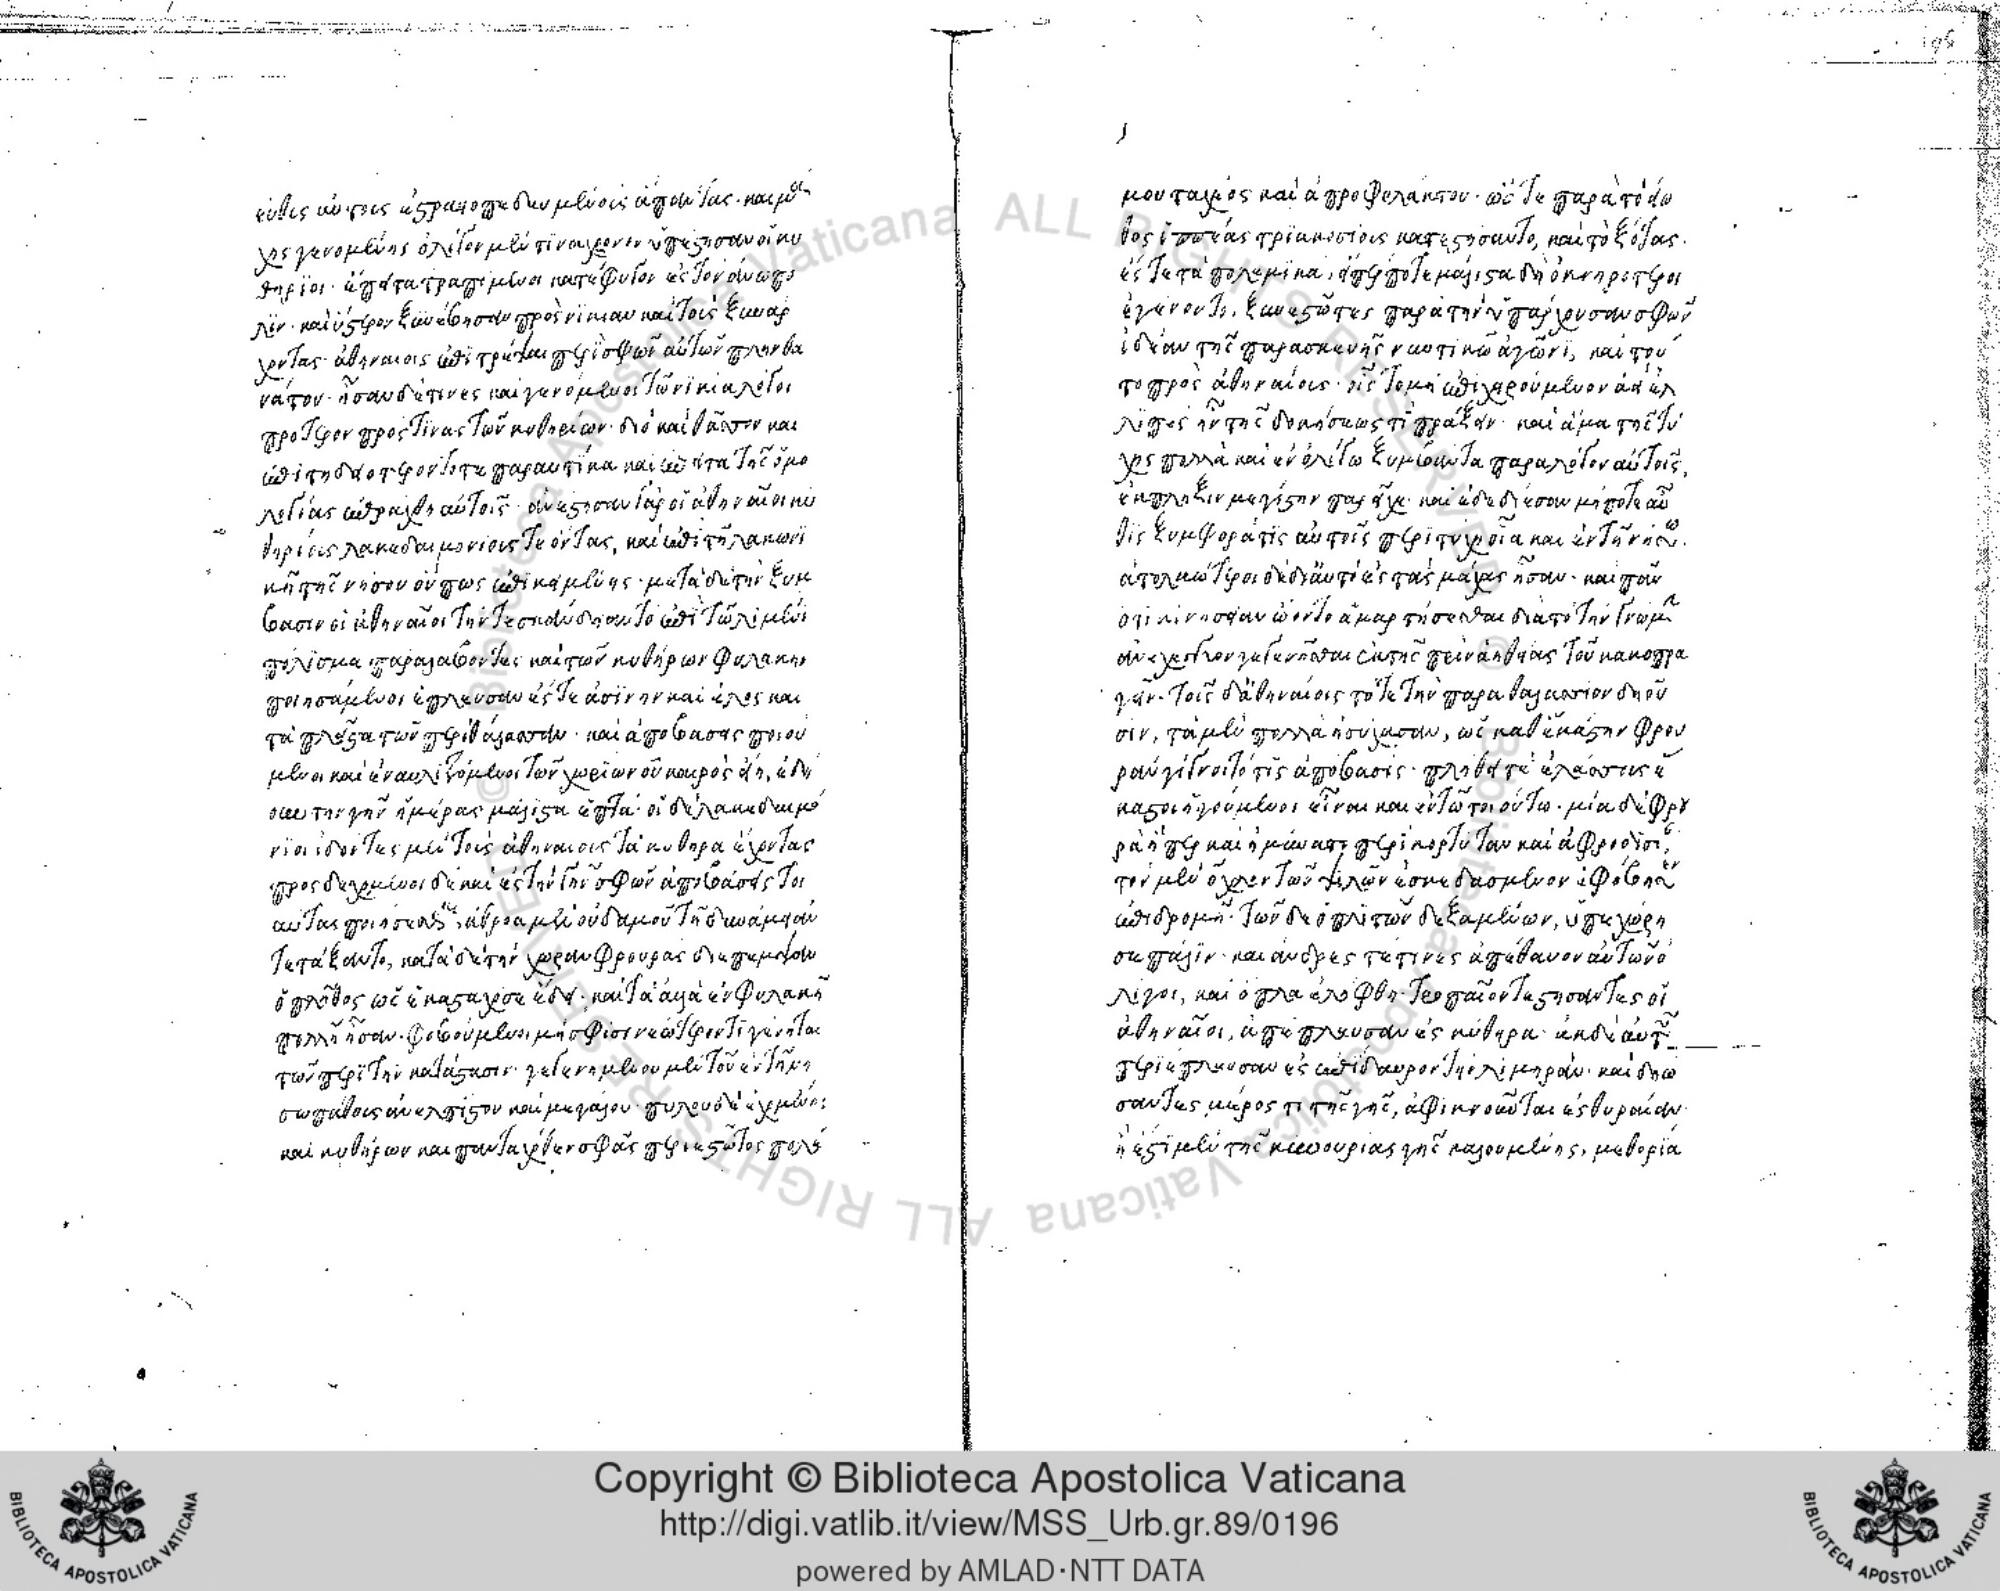 εὐθὺς αὐτοὺς ἐστρατοπεδευμένους ἅπαντας· καὶ μά
χης γενομένης ὀλίγον μέν τινα χρόνον ὑπέστησαν οἱ κυ
θήριοι· ἔπειτα τραπόμενοι κατέφυγον ἐς τὴν ἄνω πό
λιν· καὶ ὕστερον ξυνέβησαν πρὸς νικίαν καὶ τοὺς ξυνάρ
χοντας· ἀθηναίοις ἐπιτρέψαι περὶ σφῶν αὐτῶν πλὴν θα
νάτου· ἦσαν δέ τινες καὶ γενόμενοι τῶ νικία λόγοι
πρότερον πρός τινας τῶν κυθηρίων· διὸ καὶ θᾶσσον καὶ
ἐπιτηδειότερον τότε παραυτίκα καὶ ἔπειτα τῆς ὁμο
λογίας ἐπράχθη αὐτοῖς· ἀνέστησαν γὰρ οἱ ἀθηναῖοι κυ
θηρίους λακεδαιμονίους τε ὄντας, καὶ ἐπὶ τῆ λακωνι
κῆ τῆς νήσου οὕτως ἐπικειμένης· μετὰ δὲ τὴν ξύμ
βασιν οἱ ἀθηναῖοι τήν τε σκάνδειαν τὸ ἐπὶ τῶ λιμένι
πόλισμα παραλαβόντες καὶ τῶν κυθήρων φυλακὴν
ποιησάμενοι ἔπλευσαν ἔς τε ἀσίνην καὶ ἕλος καὶ
τὰ πλεῖστα τῶν περὶ θάλασσαν· καὶ ἀποβάσεις ποιού
μενοι καὶ ἐναυλιζόμενοι τῶν χωρίων οὗ καιρὸς εἴη, ἐδῄ
ουν τὴν γῆν ἡμέρας μάλιστα ἑπτά· οἱ δὲ λακεδαιμό
νιοι ἰδόντες μὲν τοὺς ἀθηναίους τὰ κύθηρα ἔχοντας
προσδεχόμενοι δὲ καὶ ἐς τὴν γῆν σφῶν ἀποβάσεις τοι
αύτας ποιήσεσθαι, ἀθρόα μὲν οὐδαμοῦ τῆ δυνάμει ἀν
τετάξαντο, κατὰ δὲ τὴν χώραν φρουρὰς διέπεμψαν
ὁπλιτῶν πλῆθος ὡς ἑκασταχόσε ἔδει· καὶ τὰ ἄλλα ἐν φυλακῆ
πολλῆ ἦσαν· φοβούμενοι μὴ σφίσι νεώτερόν τι γένηται
τῶν περὶ τὴν κατάστασιν· γεγενημένου μὲν τοῦ ἐν τῆ νή
σω πάθους ἀνελπίστου καὶ μεγάλου· πύλου δὲ ἐχομένης
καὶ κυθήρων καὶ πανταχόθεν σφᾶς περιεστῶτος πολέ
μου ταχέος καὶ ἀπροφυλάκτου· ὥστε παρὰ τὸ εἰω
θὸς ἱππέας τριακοσίους κατεστήσαντο, καὶ τοξότας.
ἔς τε τὰ πολεμικὰ, εἴπερ ποτε μάλιστα δὴ ὀκνηρότεροι
ἐγένοντο, ξυνεστῶτες παρὰ τὴν ὑπάρχουσαν σφῶν
ἰδέαν τῆς παρασκευῆς ναυτικῶ ἀγῶνι, καὶ τού
τω πρὸς ἀθηναίους· οἷς τὸ μὴ ἐπιχειρούμενον ἀεὶ ἐλ
λιπὲς ἦν τῆς δοκήσεώς τι πράξειν· καὶ ἅμα τῆς τύ
χης πολλὰ καὶ ἐν ὀλίγω ξυμβάντα παρὰ λόγον αὐτοῖς,
ἔκπληξιν μεγίστην παρεῖχε· καὶ ἐδεδίεσαν μή ποτε αὖ
θις ξυμφορά τις αὐτοῖς περιτύχοι οἵα καὶ ἐν τῆ νήσω.
ἀτολμότεροι δὲ δι' αὐτὸ ἐς τὰς μάχας ἦσαν· καὶ πᾶν
ὅτι κινήσειαν ὤοντο ἁμαρτήσεσθαι διὰ τὸ τὴν γνώμην
ἀνεχέγγυον γεγενῆσθαι ἐκ τῆς πρὶν ἀηθείας τοῦ κακοπρα
γεῖν· τοῖς δ' ἀθηναίοις τότε τὴν παραθαλάσσιον δηοῦ
σιν, τὰ μὲν πολλὰ ἡσύχασαν, ὡς καθ' ἑκάστην φρου
ρὰν γίγνοιτό τις ἀπόβασις· πλήθει τε ἐλάσσους ἕ
καστοι ἡγούμενοι εἶναι καὶ ἐν τῶ τοιούτω· μία δὲ φρου
ρὰ ἥπερ καὶ ἠμύνατο περὶ κορτύταν καὶ ἀφροδισίαν,
τὸν μὲν ὄχλον τῶν ψιλῶν ἐσκεδασμένον ἐφόβησεν
ἐπιδρομῆ· τῶν δὲ ὁπλιτῶν δεξαμένων, ὑπεχώρη
σε πάλιν· καὶ ἄνδρες τέ τινες ἀπέθανον αὐτῶν ὀ
λίγοι, καὶ ὅπλα ἐλήφθη· τροπαῖόν τε στήσαντες οἱ
ἀθηναῖοι, ἀπέπλευσαν ἐς κύθηρα· ἐκ δὲ αὐτῶν
περιέπλευσαν ἐς ἐπίδαυρον τὴν λιμηράν· καὶ δηώ
σαντες μέρος τι τῆς γῆς, ἀφικνοῦνται ἐς θυραίαν·
ἥ ἐστι μὲν τῆς κυνουρίας γῆς καλουμένης, μεθορία
Copyright © Biblioteca Apostolica Vaticana
http://digi.vatlib.it/view/MSS_Urb.gr.89/0196
powered by AMLAD·NTT DATA